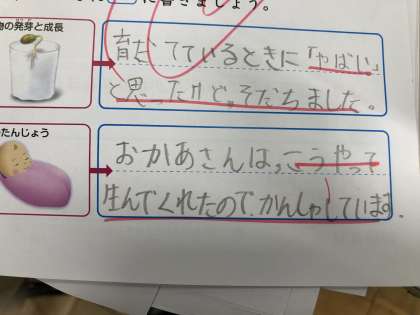 に書きましょう。
物の発芽と成長
育む てているときに「やばい」
と思ったけど。そだちました。
たんじょう
おかあさんは、こうやって
生んでくれたので、かんしゃしています。